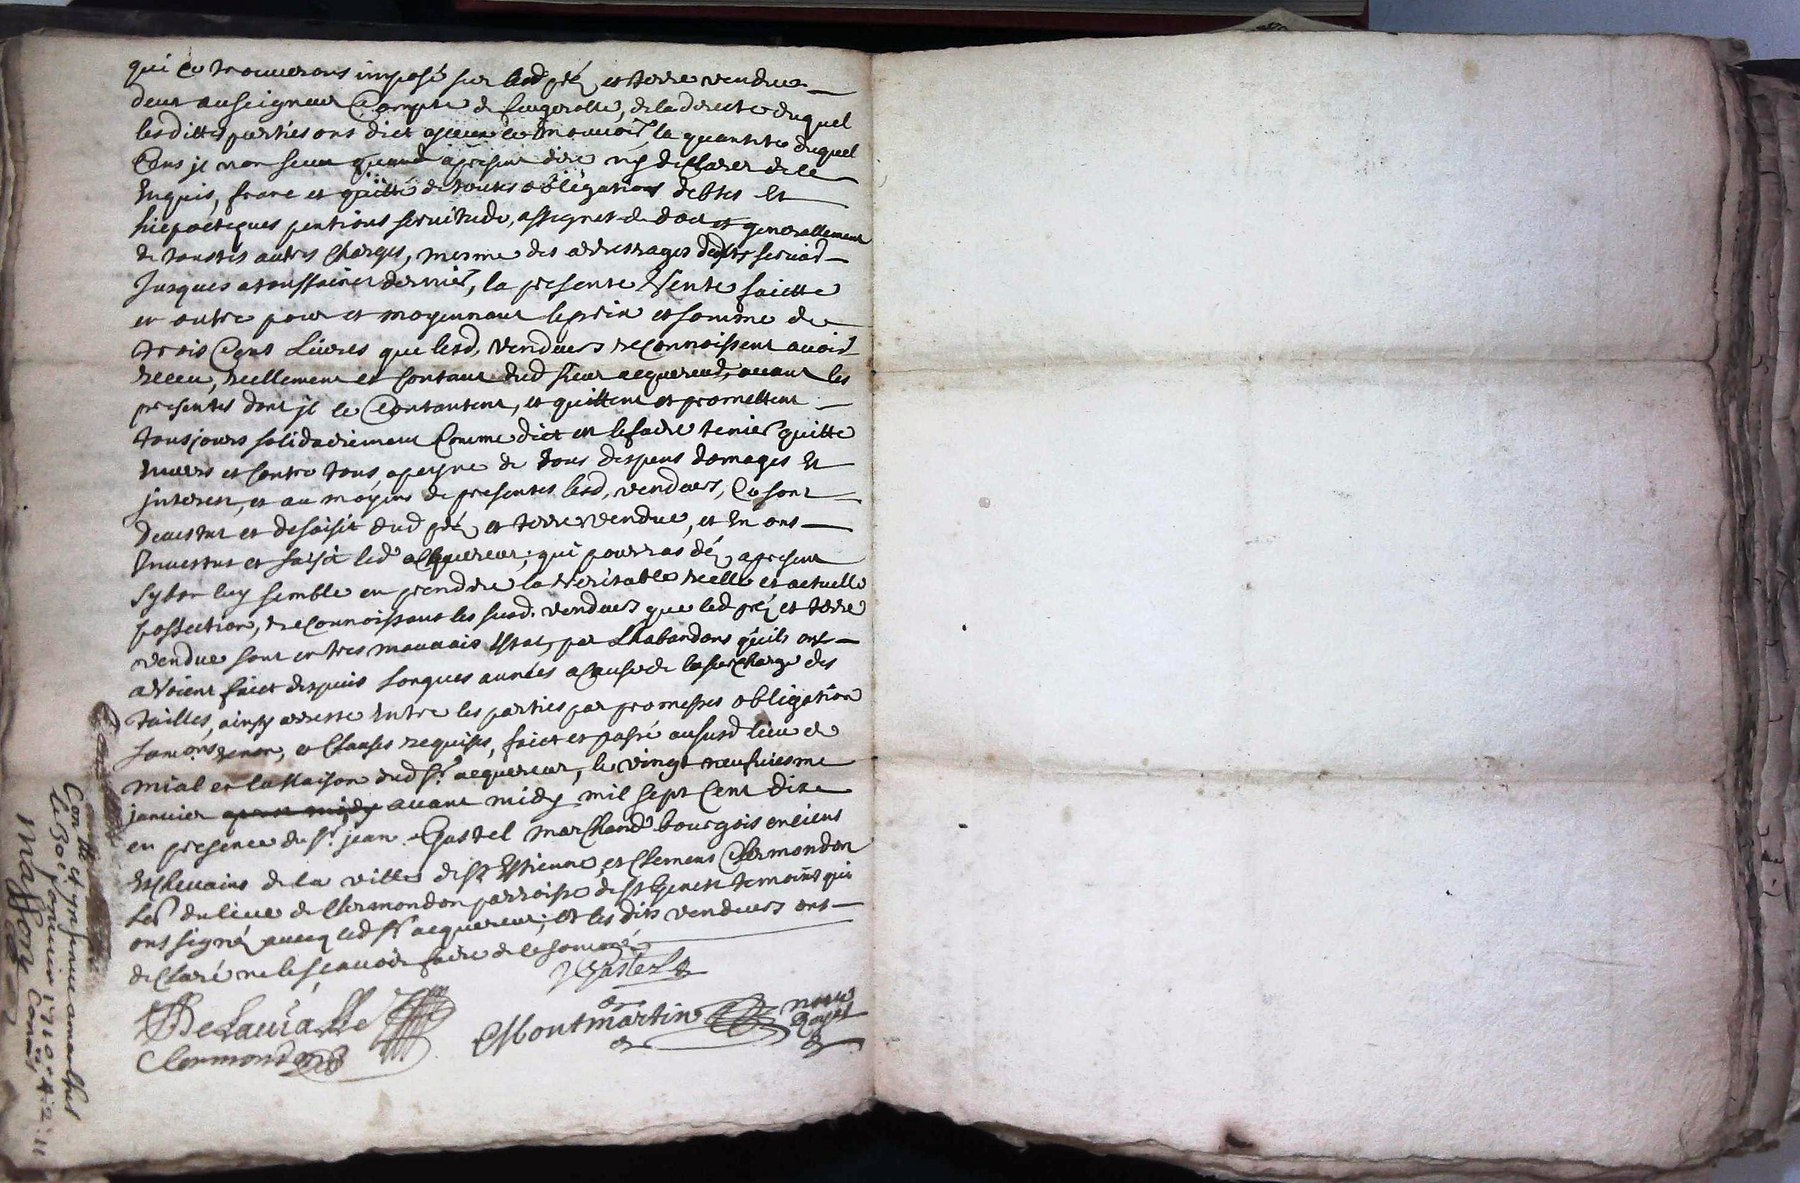 qui ce trouuerons imposé sur led pré et terre vendue
deux au seigneur Compte de feugerolle, de la directe duquel
lesdittes parties ont dict ce mouuoir, la quantité duquel
Cens je non sceu a present dire ny desClarer de ce
Enquis, franc et quitte de toutes obligations debtes et
hiepoteques pentions seruitude, assignet de dot et generallement
de touttes autres Charges, mesme des arrerages desdts seruis
Jusques a toussainct dernier, la presente Vente faicte
en outre pour et moyennant le prix et somme de
trois Cent Liures que lesd. vendeurs reConnoissent auoir
receu, reellement et Contant dud sieur acquereur, auant les
presentes dont jl ce Contantent, et quittent et promettent
tousjours solidairement Comme dict est le faire tenir quitte
enuers et Contre tous, a peyne de tous despens domages et
jnterest, et au moyens de presentes lesd. vendeurs, Ce sont
deuestus et desaisit dud pré et terre vendue, et En ont
Jnuestus et saisit led acquereur; qui pourras dez a present
sy bon luy semble en prendre la Veritable reelle et actuelle
possection, reConnoissant les susd. vendeurs que led pré et terre
vendue sont en tres mauuais Estat, par Lhabandons quils ont
avoient faict despuis Longues années a Cause de la surCharge des
tailles, ainsy arresté Entre les parties par promesses obligation
renon, et Clauses requises, faict et passé au susd lieu de
mial en la Maison dud sr. acquereur, le vingt neufuiesme
januier apres midy auant midy mil sept Cent dixe
en presence de sr. jean Gastel marChand bourgois enciens
EsCheuains de la ville de st Estienne, et Clemens Clermondon
du lieu de Clermondon parroisse de st Genest temoins qui
ont signé auecq led sr acquereur; Et les dits vendeurs ont
desClaré ne le sçauoir faire de ce sommé
JGastel
DeLauialle
Montmartin
nore
Royal
Clermondon
Con.llé et
le 30 januier 1710
Masson Comis